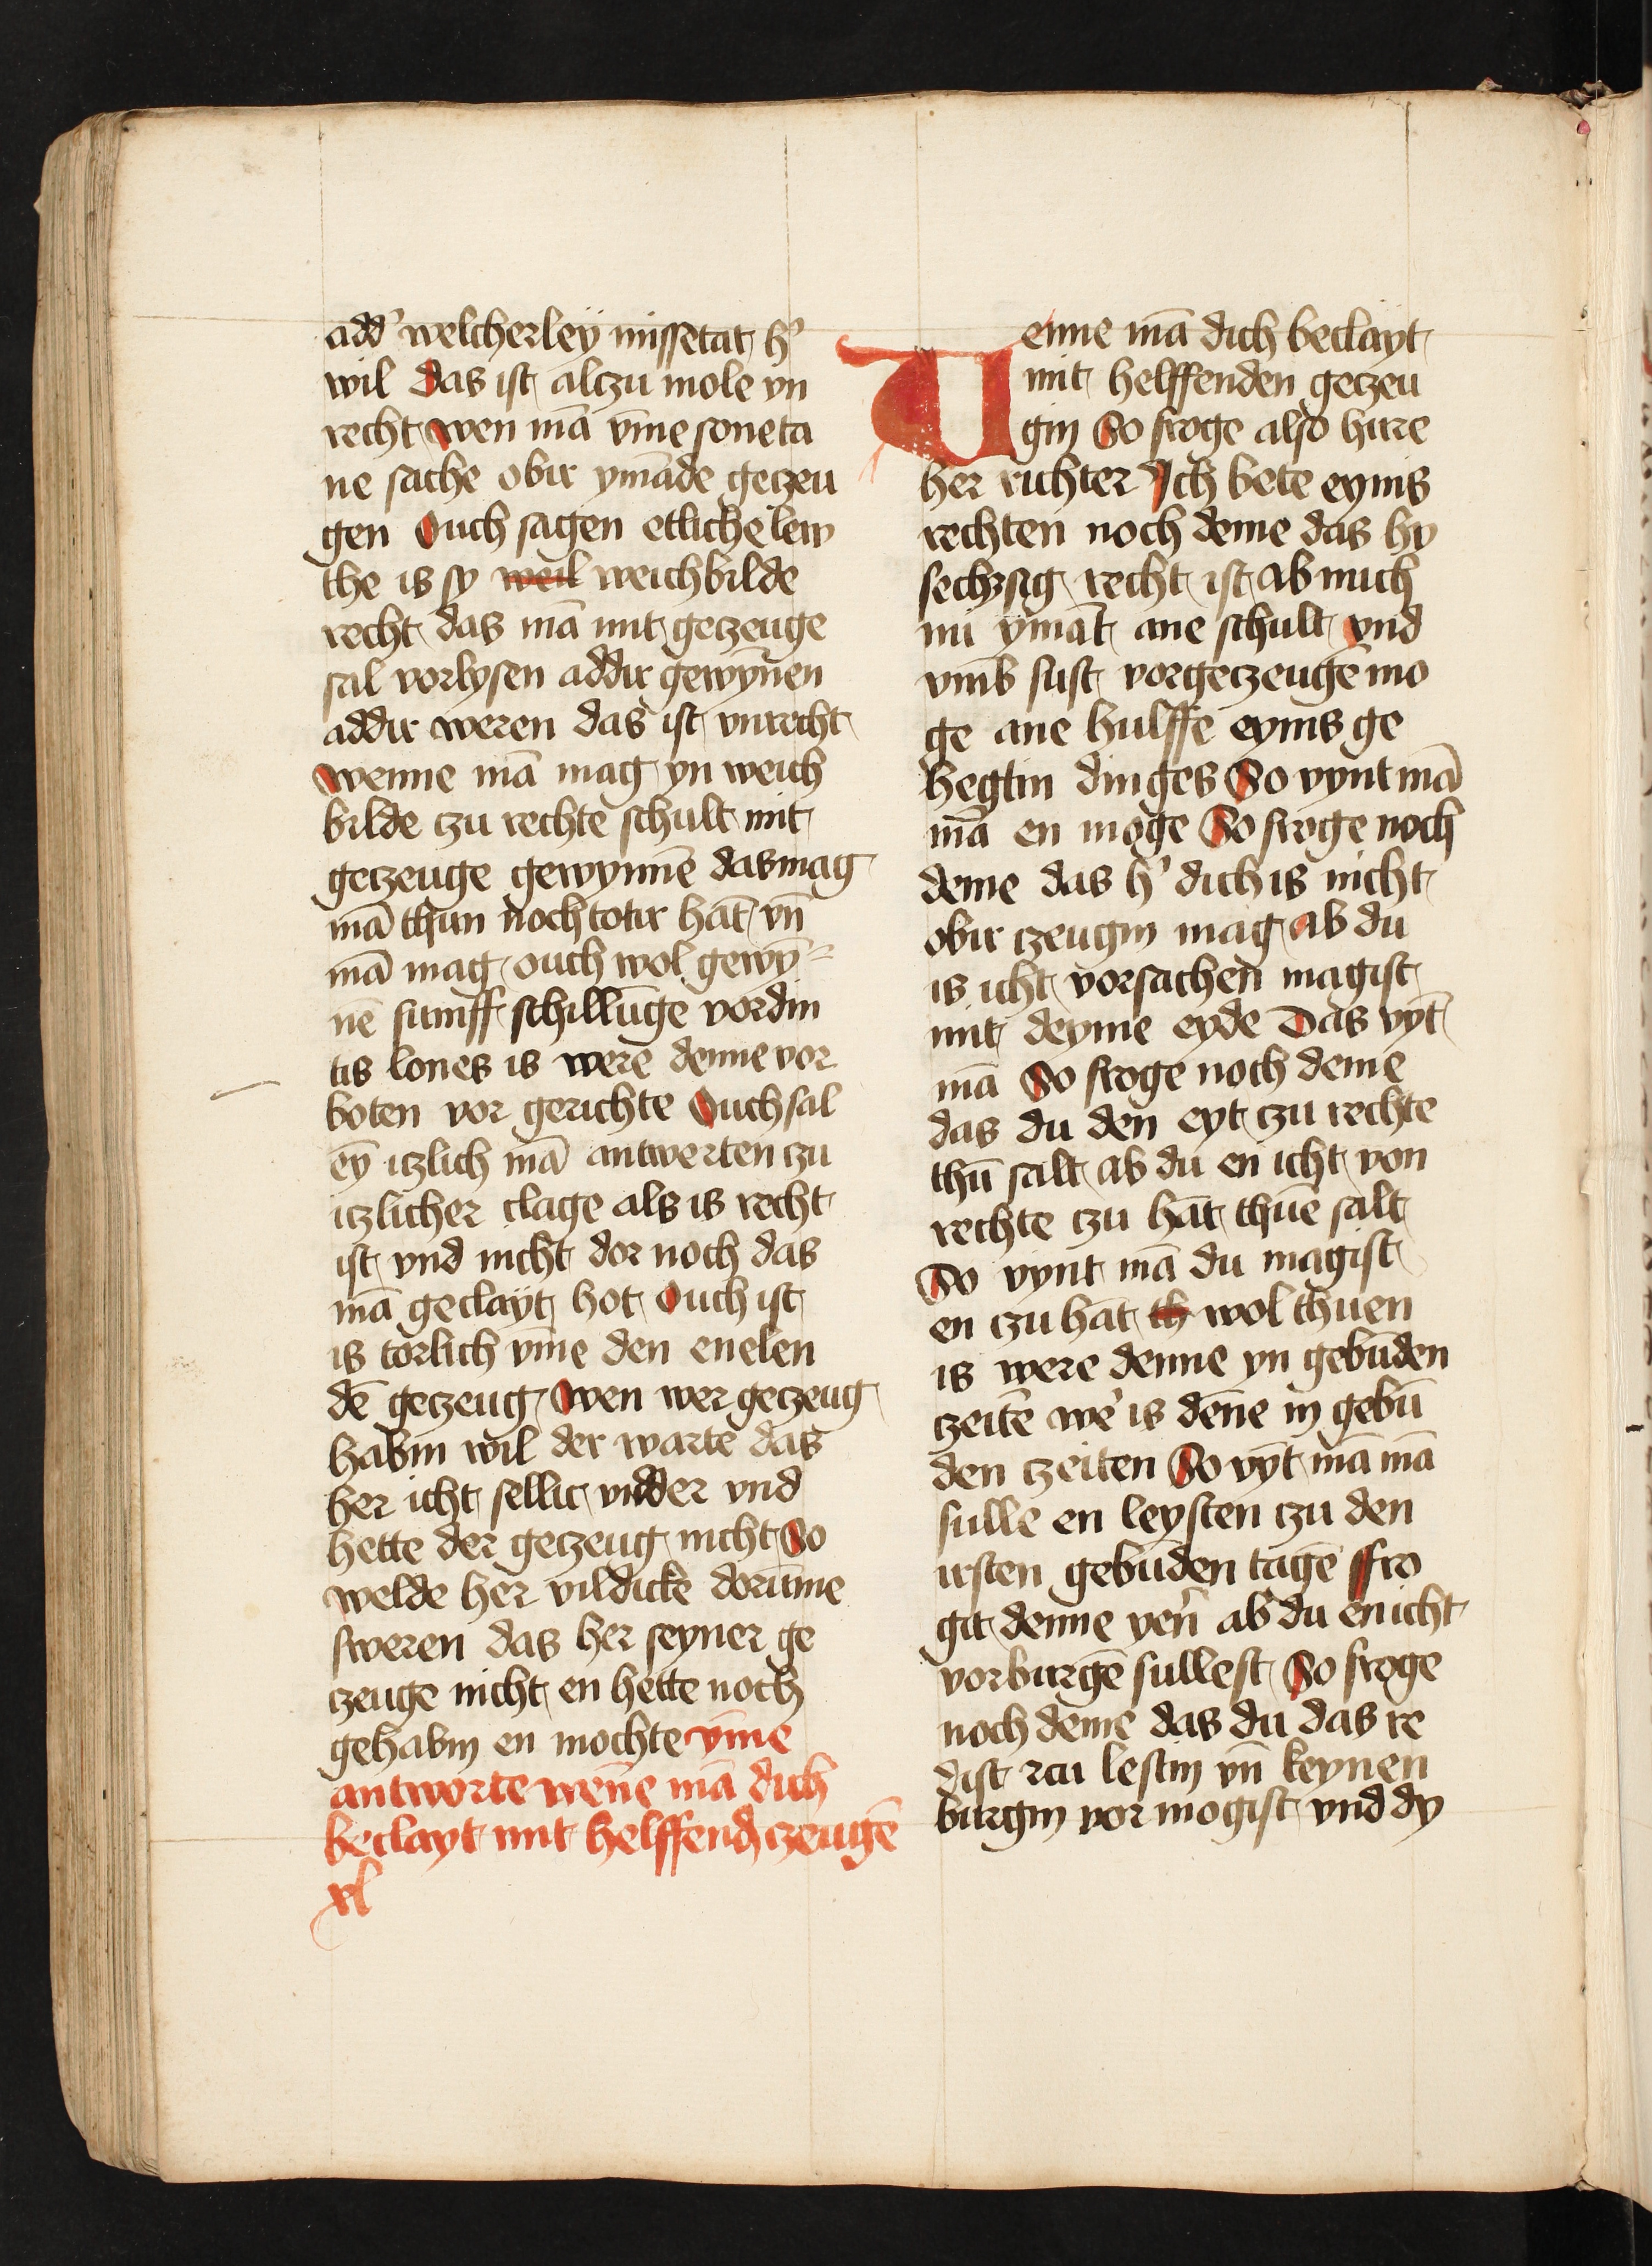 add' welcherleÿ missetat h'
wil Das ist alczu mole vn
recht wen mā vm̄e soneta
ne sache obir ymāde geczeu
gen Ouch sagen etliche lew
the is sy weil weichbilde
recht das mā mit geczeuge
sal vorlysen addir gewyn̄en
addir weren das ist vnrecht
Wenne mā mag yn weich
bilde czu rechte schult mit
geczeuge gewynnē das mag
mā thun noch totir hāt vn̄
mā mag ouch wol gewȳ⸗
nē fumff schillūge vordin
tis lones is were denne vor
boten vor gerichte Ouch sal
eȳ iczlich mā antwerten czu
iczlicher clage als is recht
ist vnd nicht dor noch das
mā geclaÿt hot Ouch ist
is torlich vm̄e den enelen
dē geczeug Wen wer geczeug
habin wil der warte das
her icht fellic wdder vnd
hette der geczeug nicht So
welde her vildicke dorūme
sweren das her seyner ge
czeuge nicht en hette noch
gehabin en mochte vm̄e
antworte wen̄e mā dich
beclayt mit helffend czeugē
xl
Wenne mā dich beclayt
mit helffenden geczeu
gin So froge also hirre
her richter Ich bete eynis
rechten noch deme das hy
sechzsig recht ist ab mich
nu ymāt ane schult vnd
vmb sust vorgeczeugē mo
ge ane hulffe eynis ge
hegtin dinges So vynt mā
mā en moge So froge noch
deme das h' dich is nicht
obir czeugin mag ab du
is icht vorsachen magist
mit deyme eyde Das vȳt
mā So froge noch deme
das du den eyt czu rechte
thū salt ab du en icht von
rechte czu hāt thūe salt
So vynt mā du magist
en czu hāt th wol thuen
is were denne yn gebūden
czeitē we' is den̄e in gebū
den czeiten So vȳt mā mā
sulle en leysten czu den
irsten gebūden tagē ffro
git denne yen' ab du en icht
vorburgē sullest So froge
noch deme das du das re
dist czu lestin vn̄ keynen
burgin vor mogist vnd dy